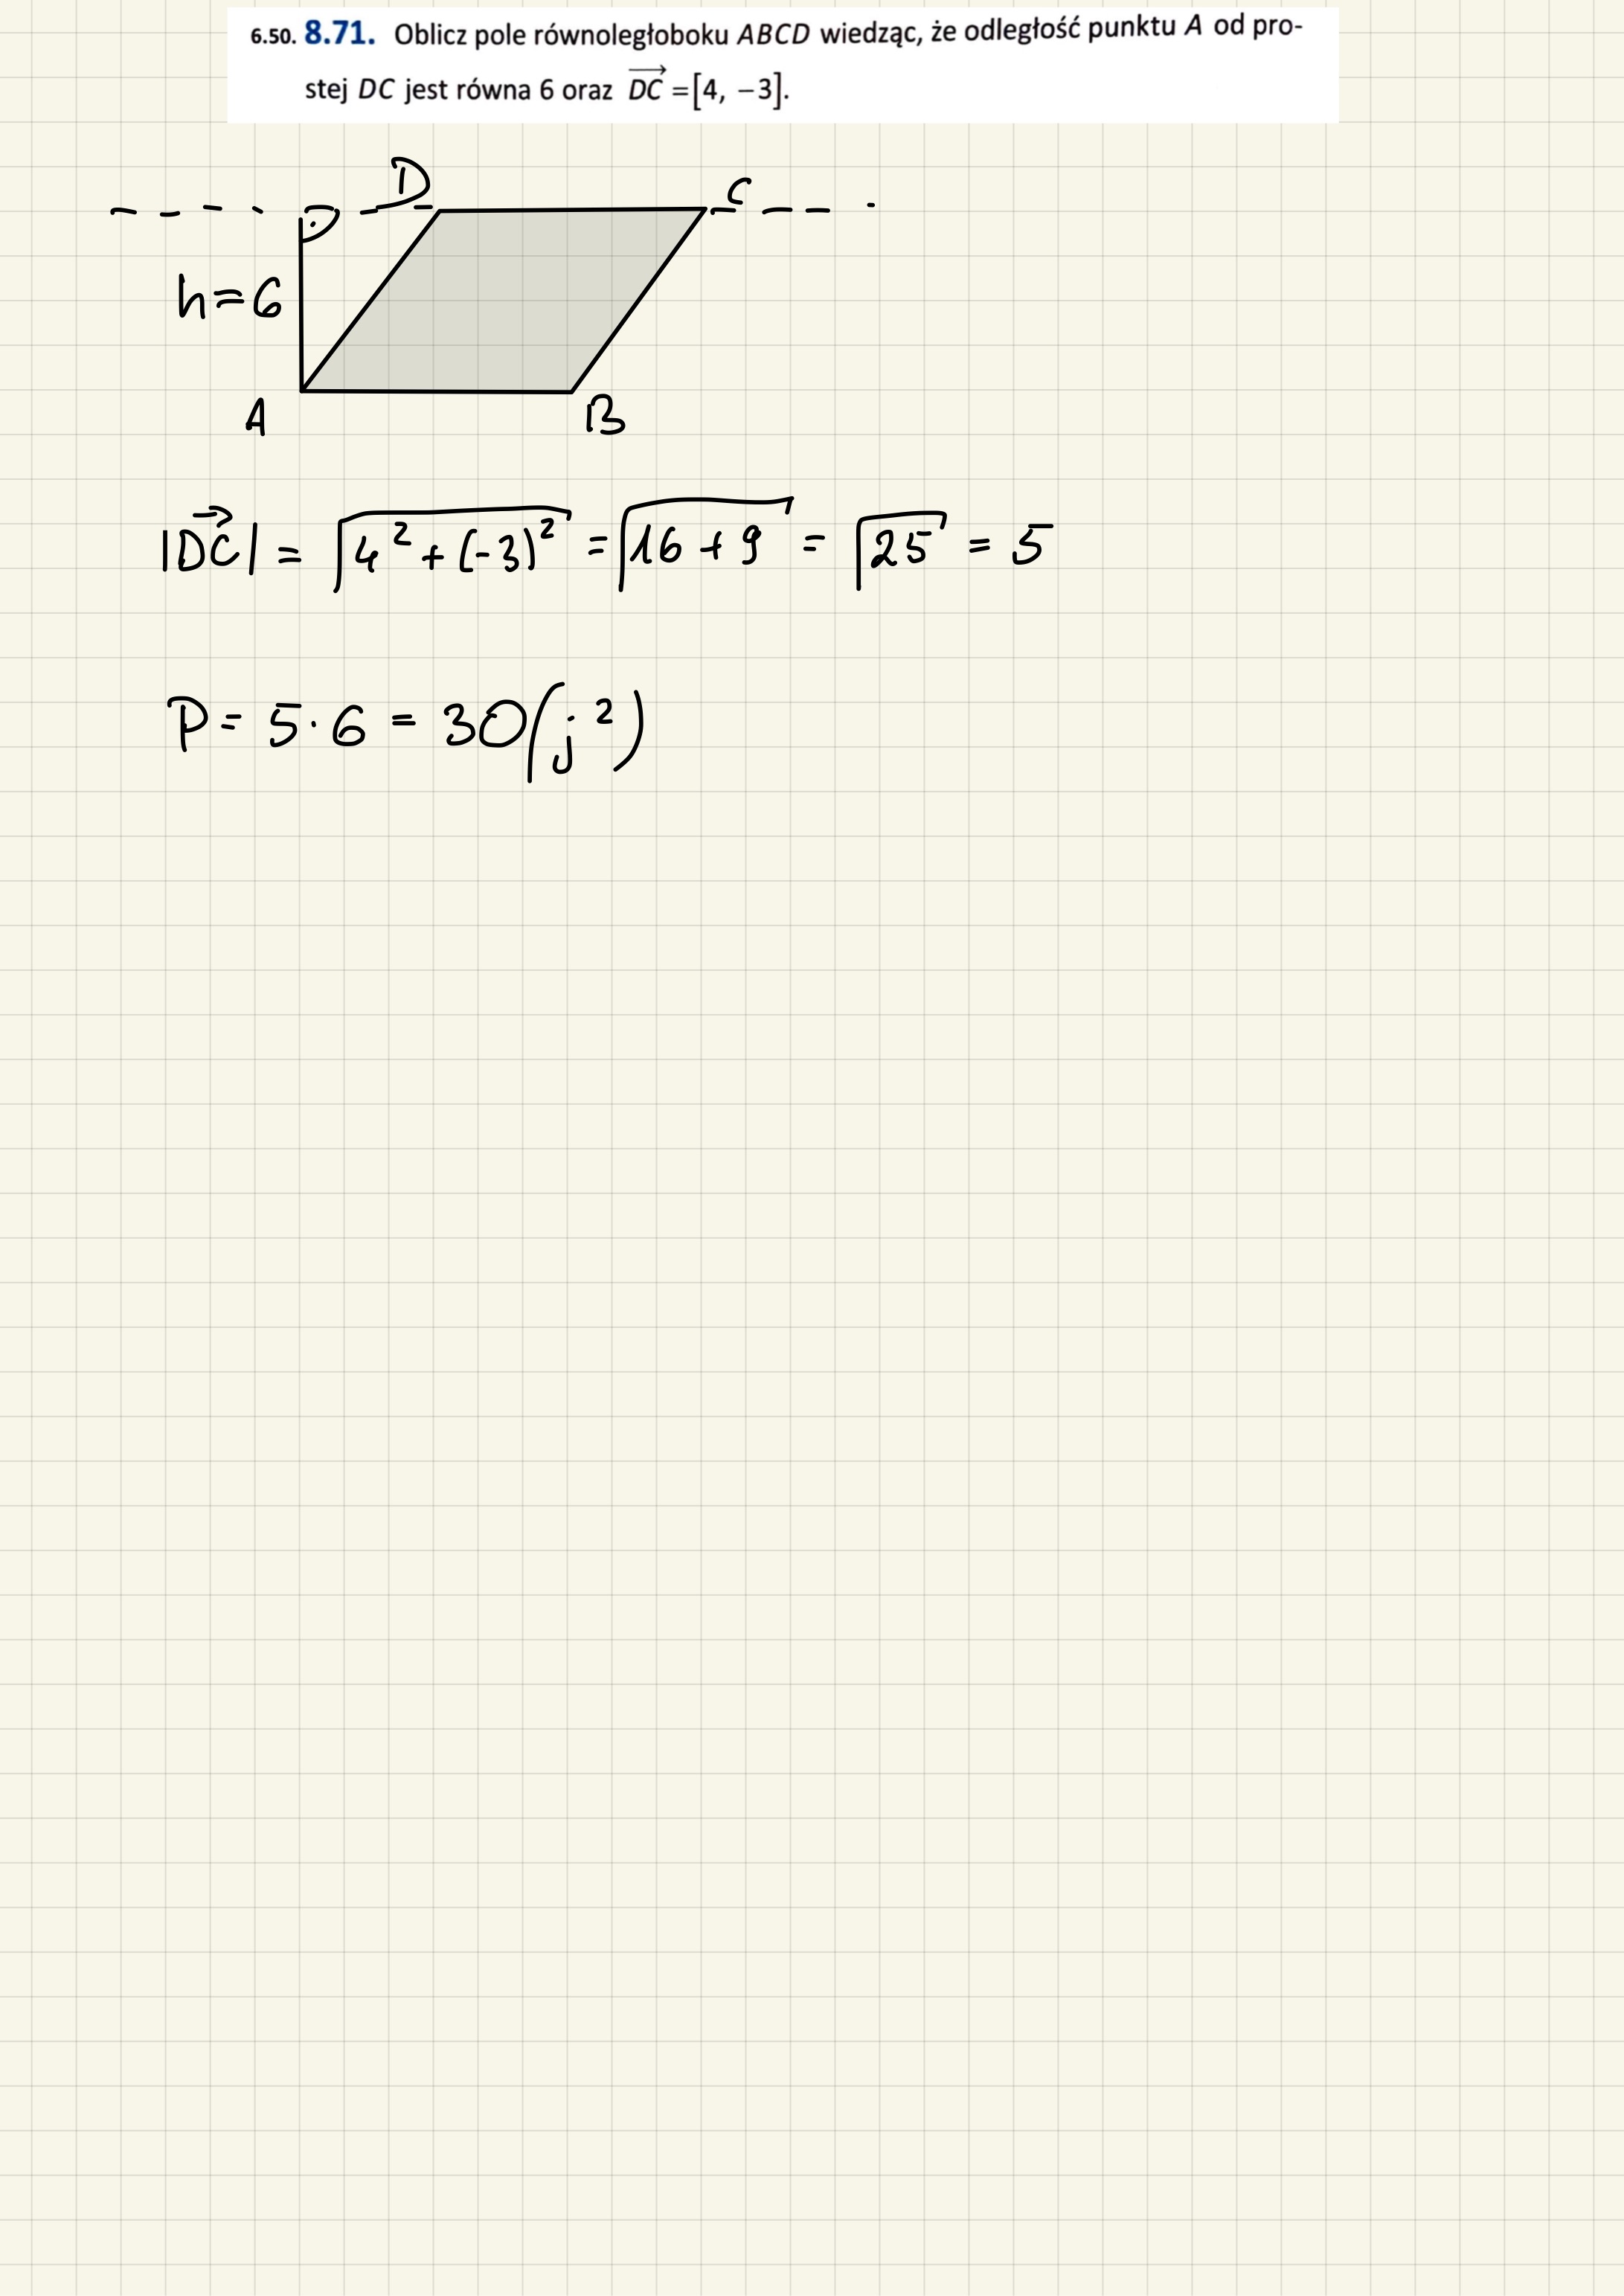 6.50. 8.71. Oblicz pole równoległoboku ABCD wiedząc, że odległość punktu A od pro-
stej DC jest równa 6 oraz $\overrightarrow{DC}$ = [4, −3].
D C
h = 6
A B
|$\overrightarrow{DC}$| = √(4² + (-3)²) = √(16 + 9) = √25 = 5
P = 5 · 6 = 30 (j²)